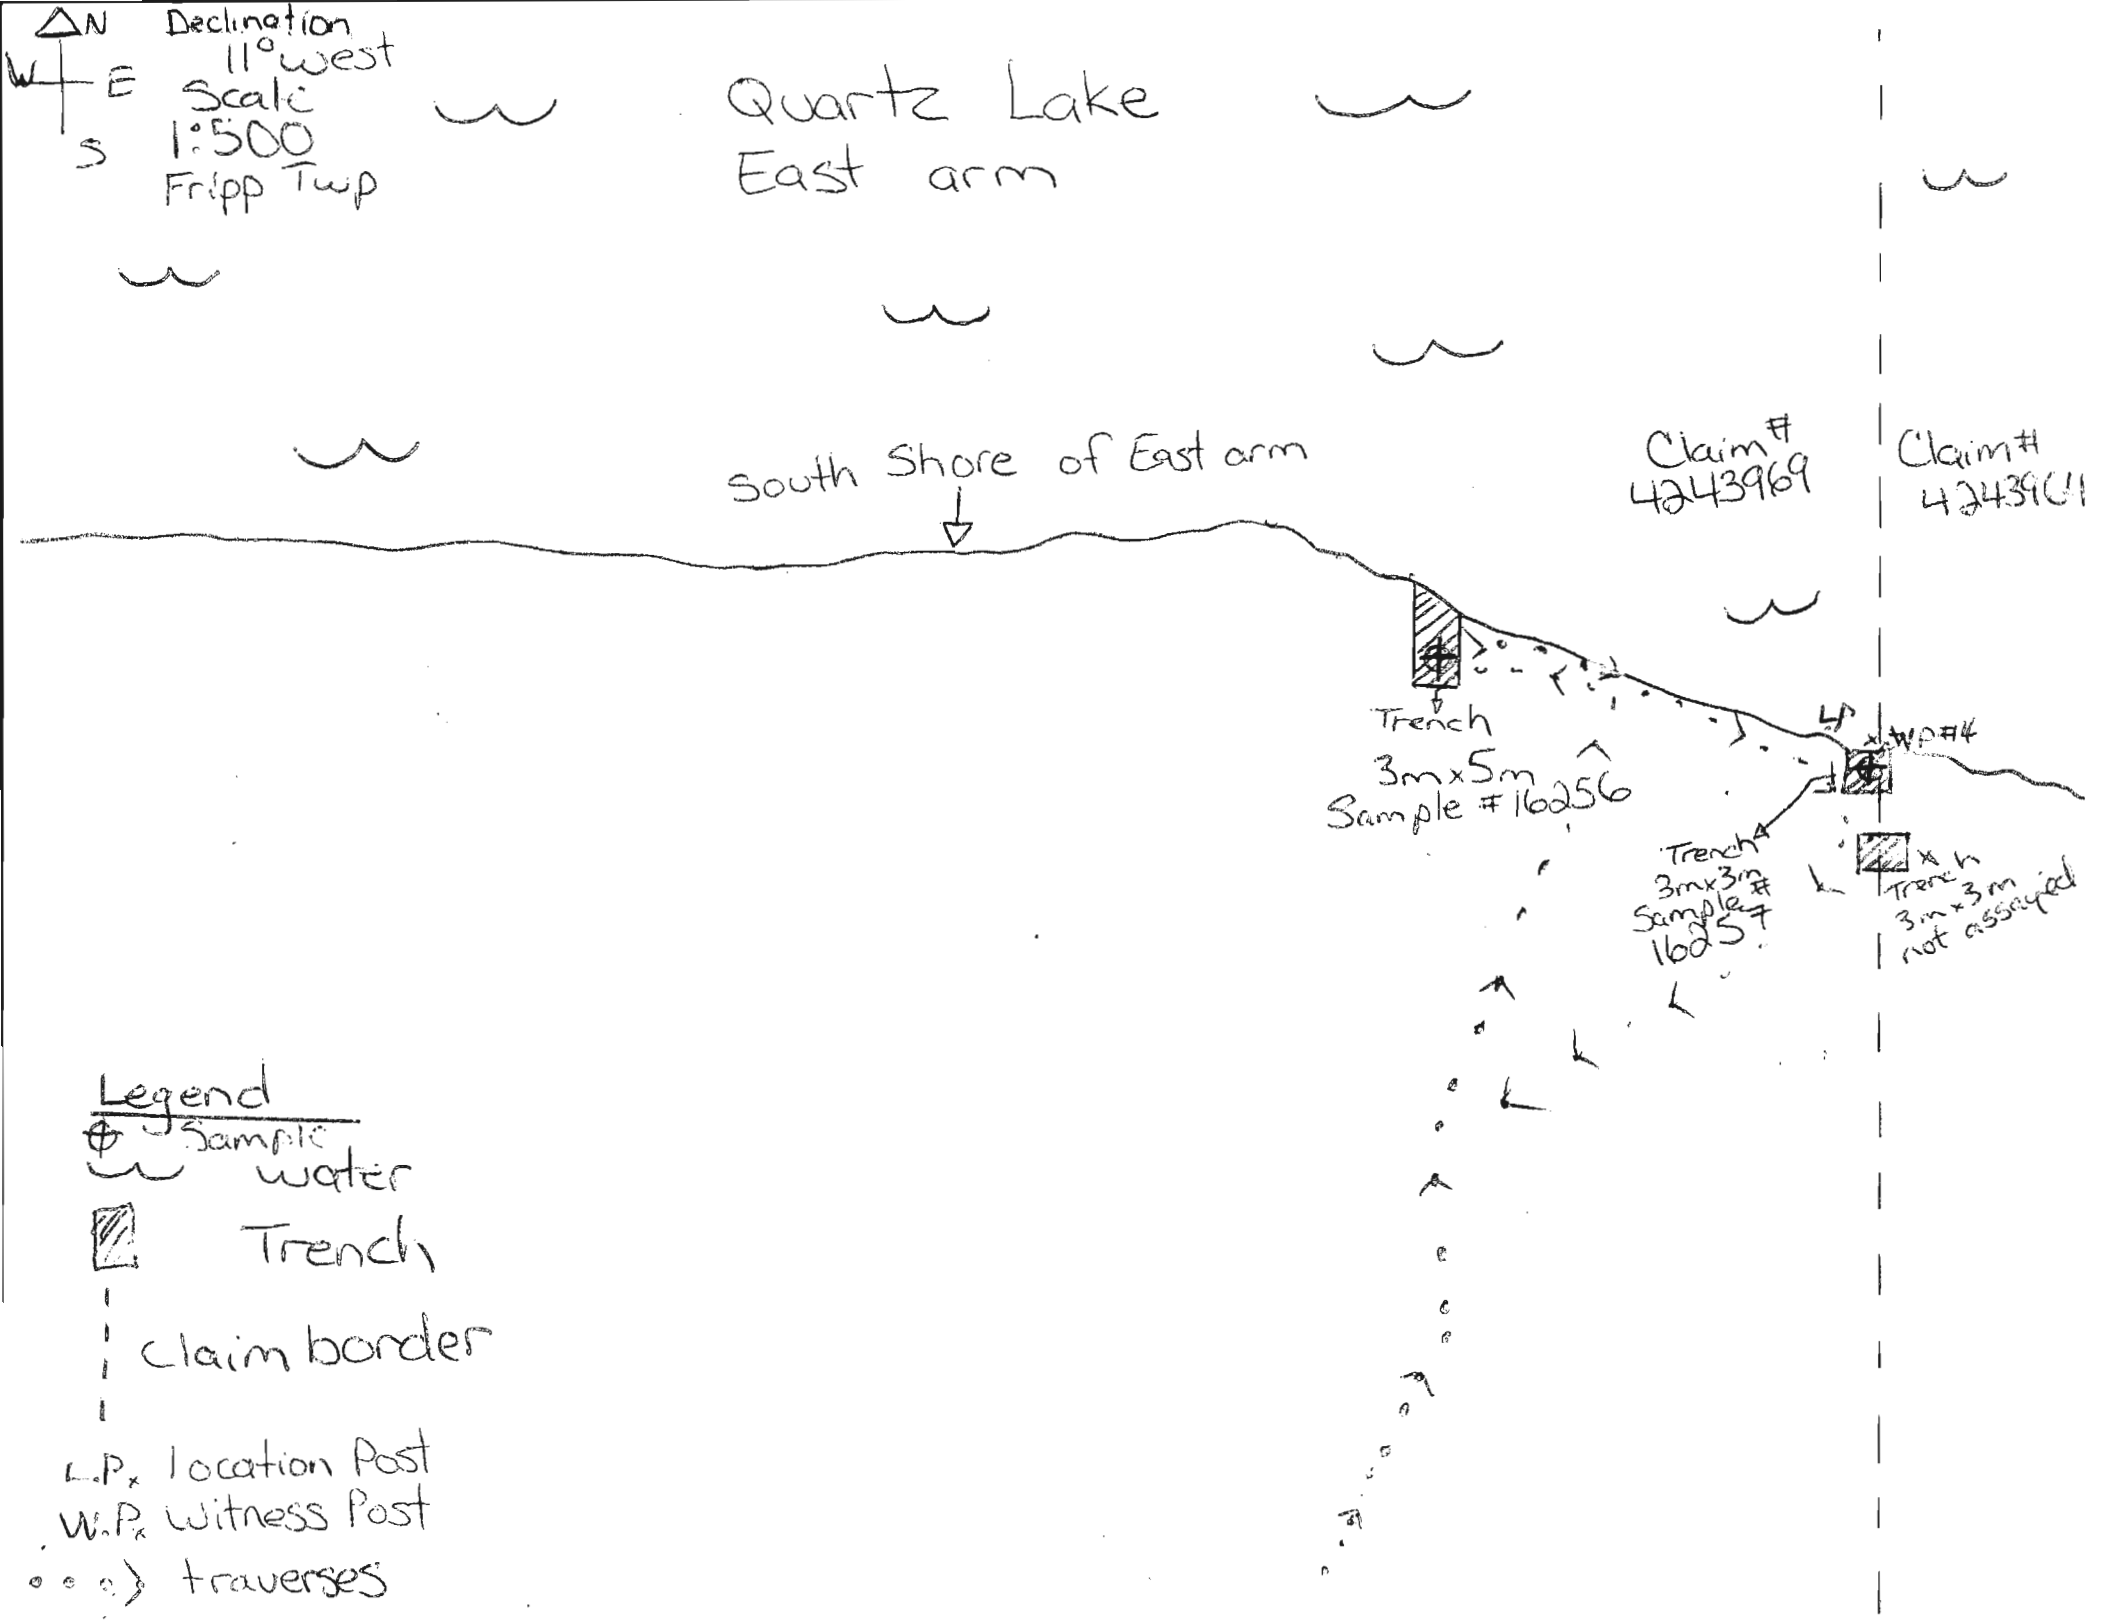 N
W
E
S
Declination
11° west
Scale
1:500
Fripp Twp
Quartz Lake
East arm
South Shore of East arm
Claim #
4243969
Claim #
Trench
3m x 5m
Sample # 16256
LP
x WP #4
Trench
3m x 3m
Sample #
16257
x
Trench
3m x 3m
not assayed
Legend
Sample
water
Trench
Claim border
L.P.x location Post
W.P.x Witness Post
traverses